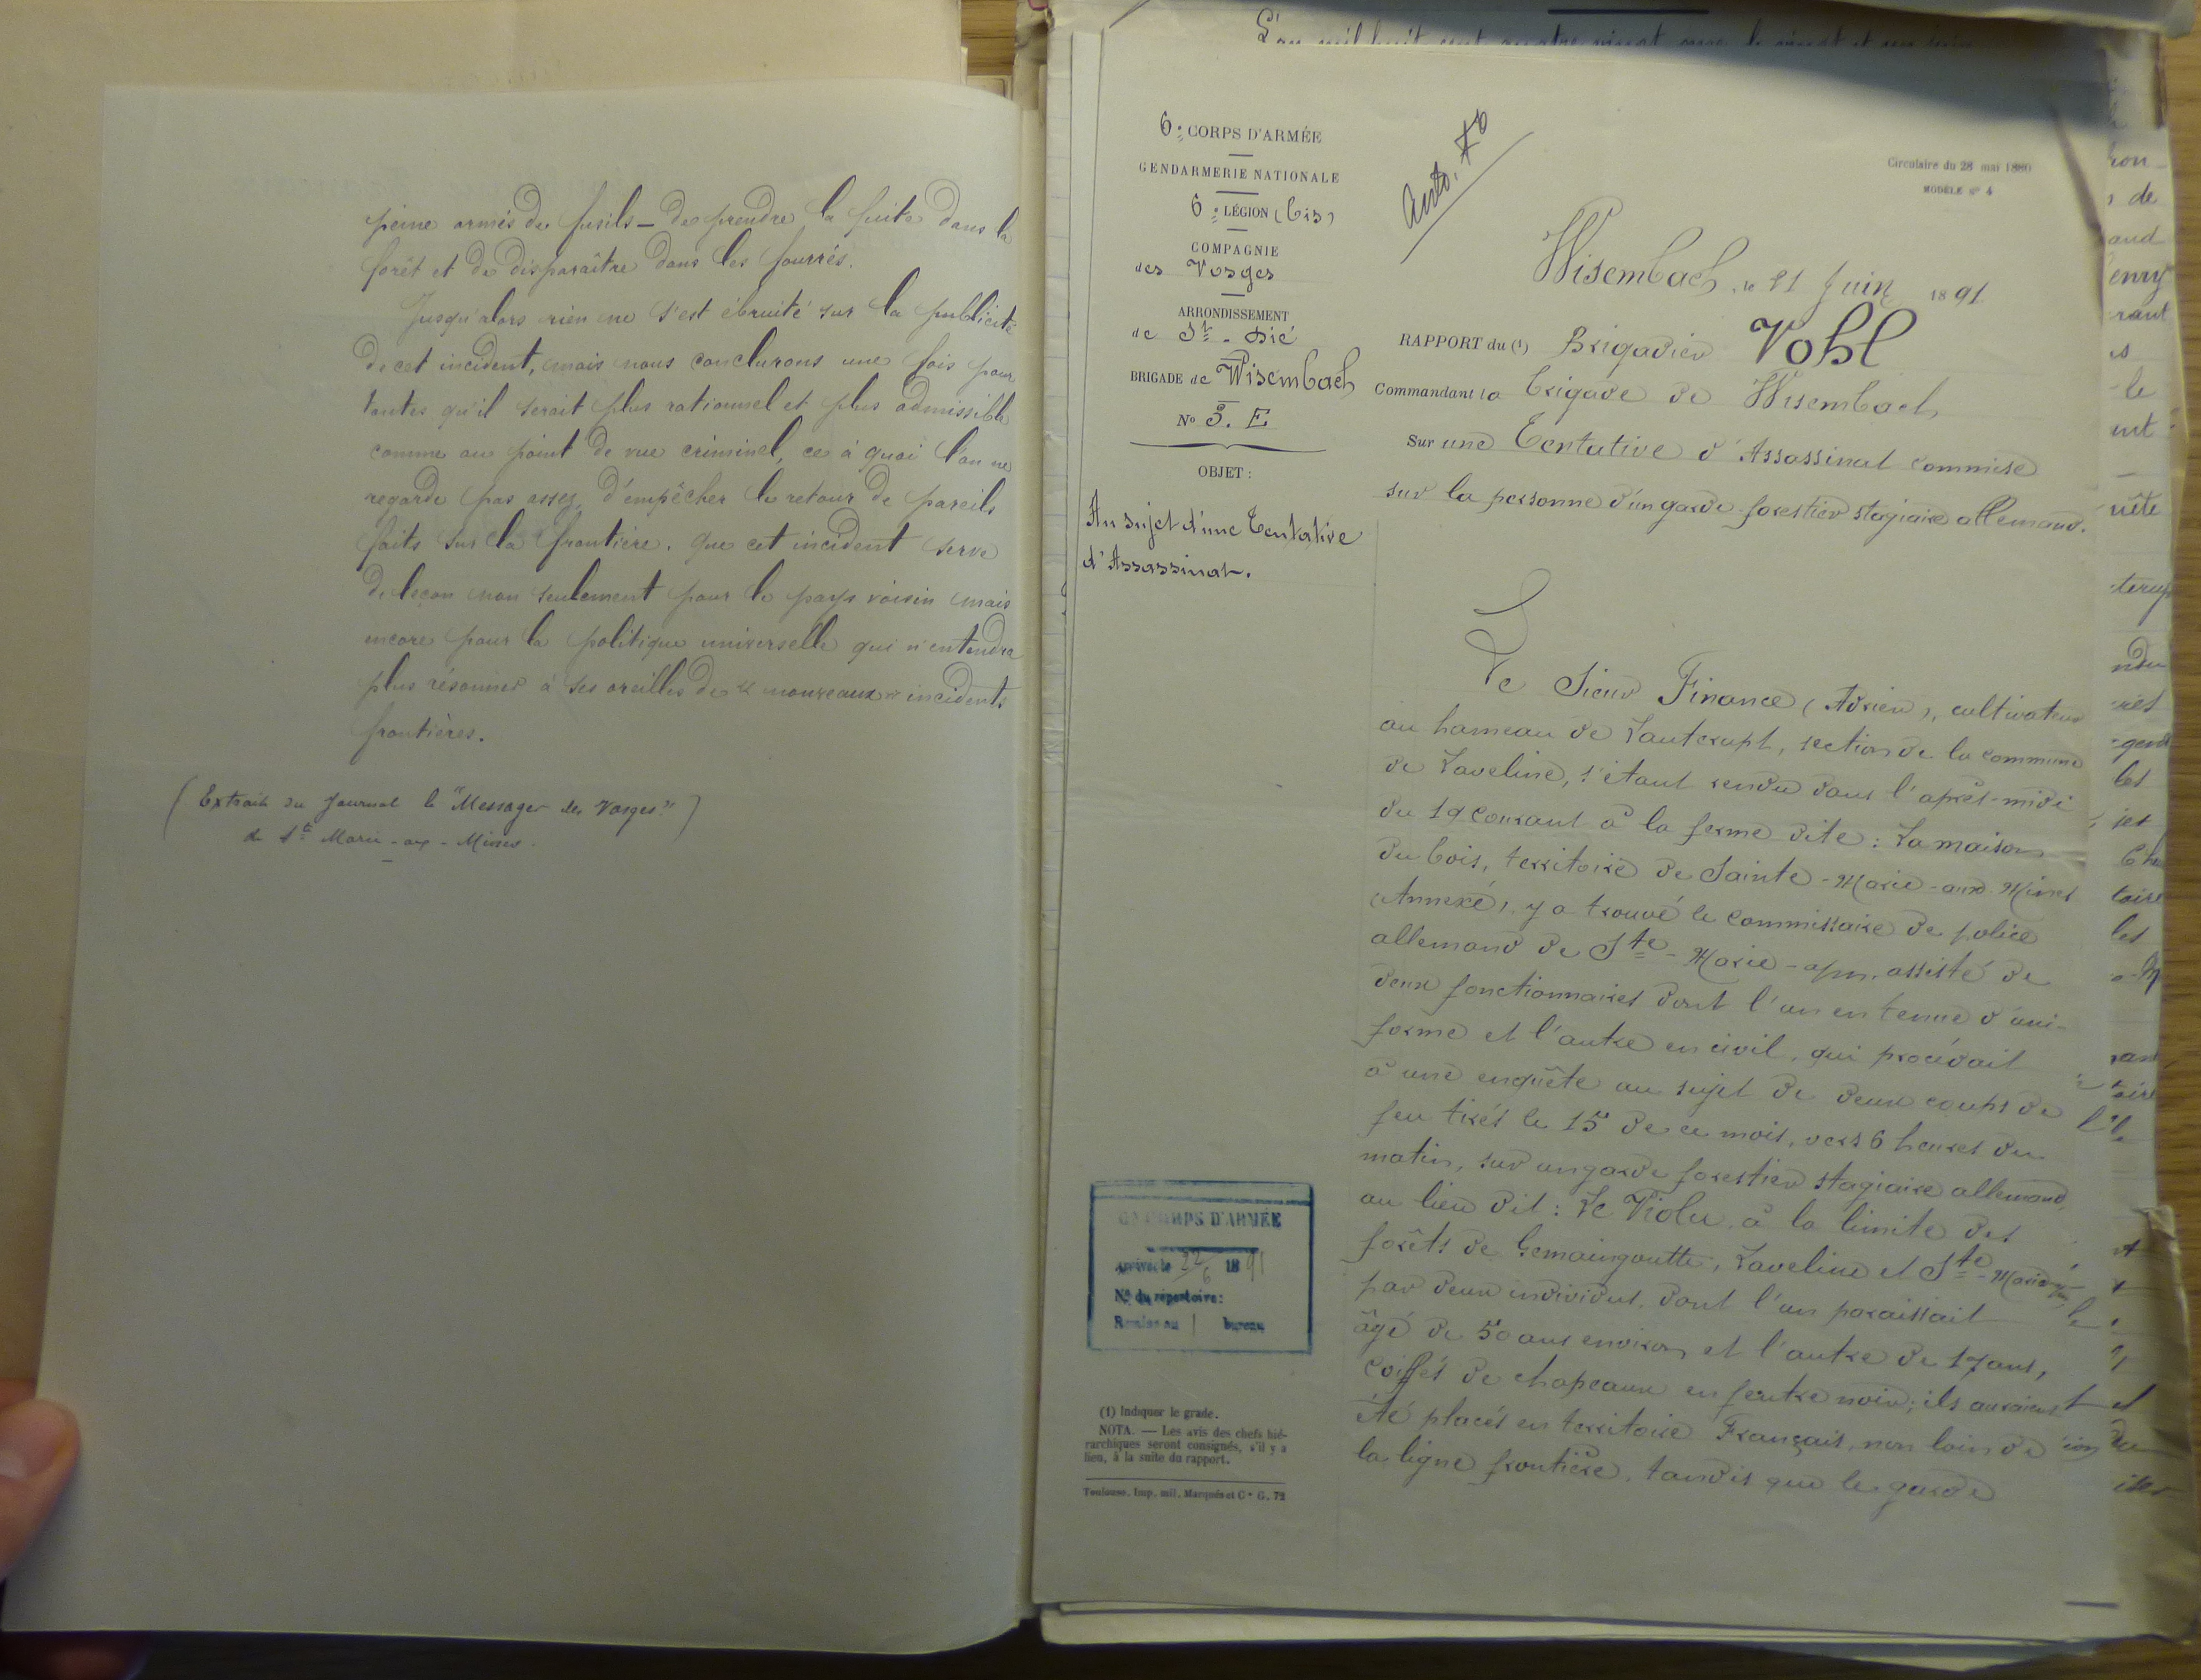 peine armés de fusils — de prendre la fuite dans la
forêt et de disparaître dans les fourrés.
Jusqu'alors rien ne s'est ébruité sur la publicité
de cet incident, mais nous conclurons une fois pour
toutes qu'il serait plus rationnel et plus admissible
comme au point de vue criminel, ce à quoi l'on ne
regarde pas assez, d'empêcher le retour de pareils
faits sur la frontière. Que cet incident serve
de leçon non seulement pour le pays voisin mais
encore pour la politique universelle qui n'entendra
plus résonner à ses oreilles de « nouveaux » incidents
frontières.
(Extrait du Journal le "Messager des Vosges")
de Ste Marie-aux-Mines.
L'an mil huit cent quatre vingt onze le vingt et un Juin
6e CORPS D'ARMÉE
GENDARMERIE NATIONALE
6e LÉGION (bis)
COMPAGNIE
des Vosges
ARRONDISSEMENT
de St-Dié
BRIGADE de Wisembach
No 3. E
OBJET :
Au sujet d'une Tentative
d'Assassinat.
Circulaire du 28 mai 1880
MODÈLE No 4
Wisembach, le 21 Juin 1891
RAPPORT du (1) Brigadier Vohl
Commandant la brigade de Wisembach
Sur une Tentative d'Assassinat commise
sur la personne d'un garde-forestier stagiaire allemand.
Le Sieur Finance (Adrien), cultivateur
au hameau de Lauterupt, section de la commune
de Laveline, s'étant rendu dans l'après-midi
du 19 courant à la ferme dite : La maison
du bois, territoire de Sainte-Marie-aux-Mines
(Annexé), y a trouvé le commissaire de police
allemand de Ste-Marie-a/m. assisté de
deux fonctionnaires dont l'un en tenue d'uni-
forme et l'autre en civil, qui procédait
à une enquête au sujet de deux coups de
feu tirés le 15 de ce mois, vers 6 heures du
matin, sur un garde forestier stagiaire allemand,
au lieu dit : Le Violu, à la limite des
forêts de Gemaingoutte, Laveline et Ste-Marie
par deux individus, dont l'un paraissait
âgé de 50 ans environ et l'autre de 17 ans,
coiffés de chapeaux en feutre noir; ils auraient
été placés en territoire Français, non loin de
la ligne frontière, tandis que le garde
6e CORPS D'ARMÉE
Arrivé le 22/6 1891
No du répertoire :
Remise au bureau
(1) Indiquer le grade.
NOTA. — Les avis des chefs hié-
rarchiques seront consignés, s'il y a
lieu, à la suite du rapport.
Toulouse. Imp. mil. Marqués et Ce G. 72